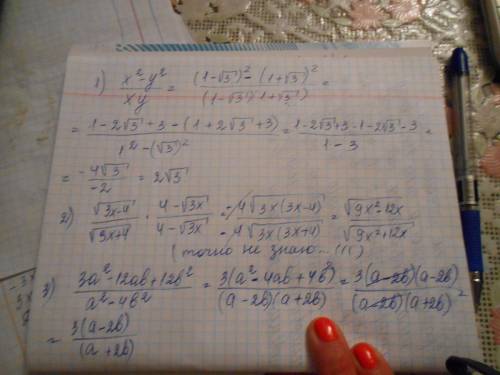 1) (x²-y²)/(xy) = ((1-√3)² - (1+√3)²)/((1-√3)(1+√3)) =
= (1-2√3+3-(1+2√3+3))/(1²-(√3)²) = (1-2√3+3-1-2√3-3)/(1-3) =
= (-4√3)/(-2) = 2√3
2) (√3x-4)/(√3x+4) · (4-√3x)/(4-√3x) = (-4√3x(3x-4))/(-4√3x(3x+4)) = √(9x²-12x)/√(9x²+12x)
(точно не знаю...(((()
3) (3a²-12ab+12b²)/(a²-4b²) = 3(a²-4ab+4b²)/((a-2b)(a+2b)) = 3(a-2b)(a-2b)/((a-2b)(a+2b)) =
= 3(a-2b)/(a+2b)